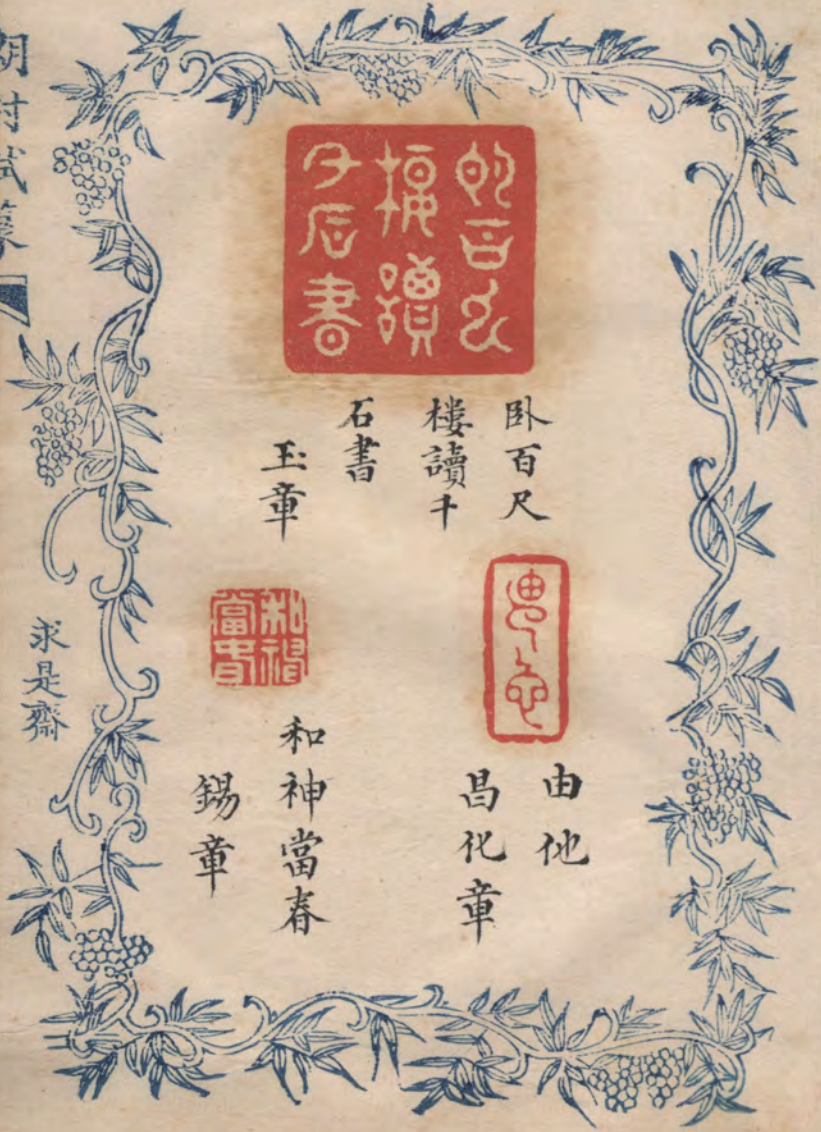 卧百尺
樓讀千
石書
卧百尺
樓讀千
石書
玉章
由他
由他
昌化章
和神
當春
和神當春
錫章
求是齋